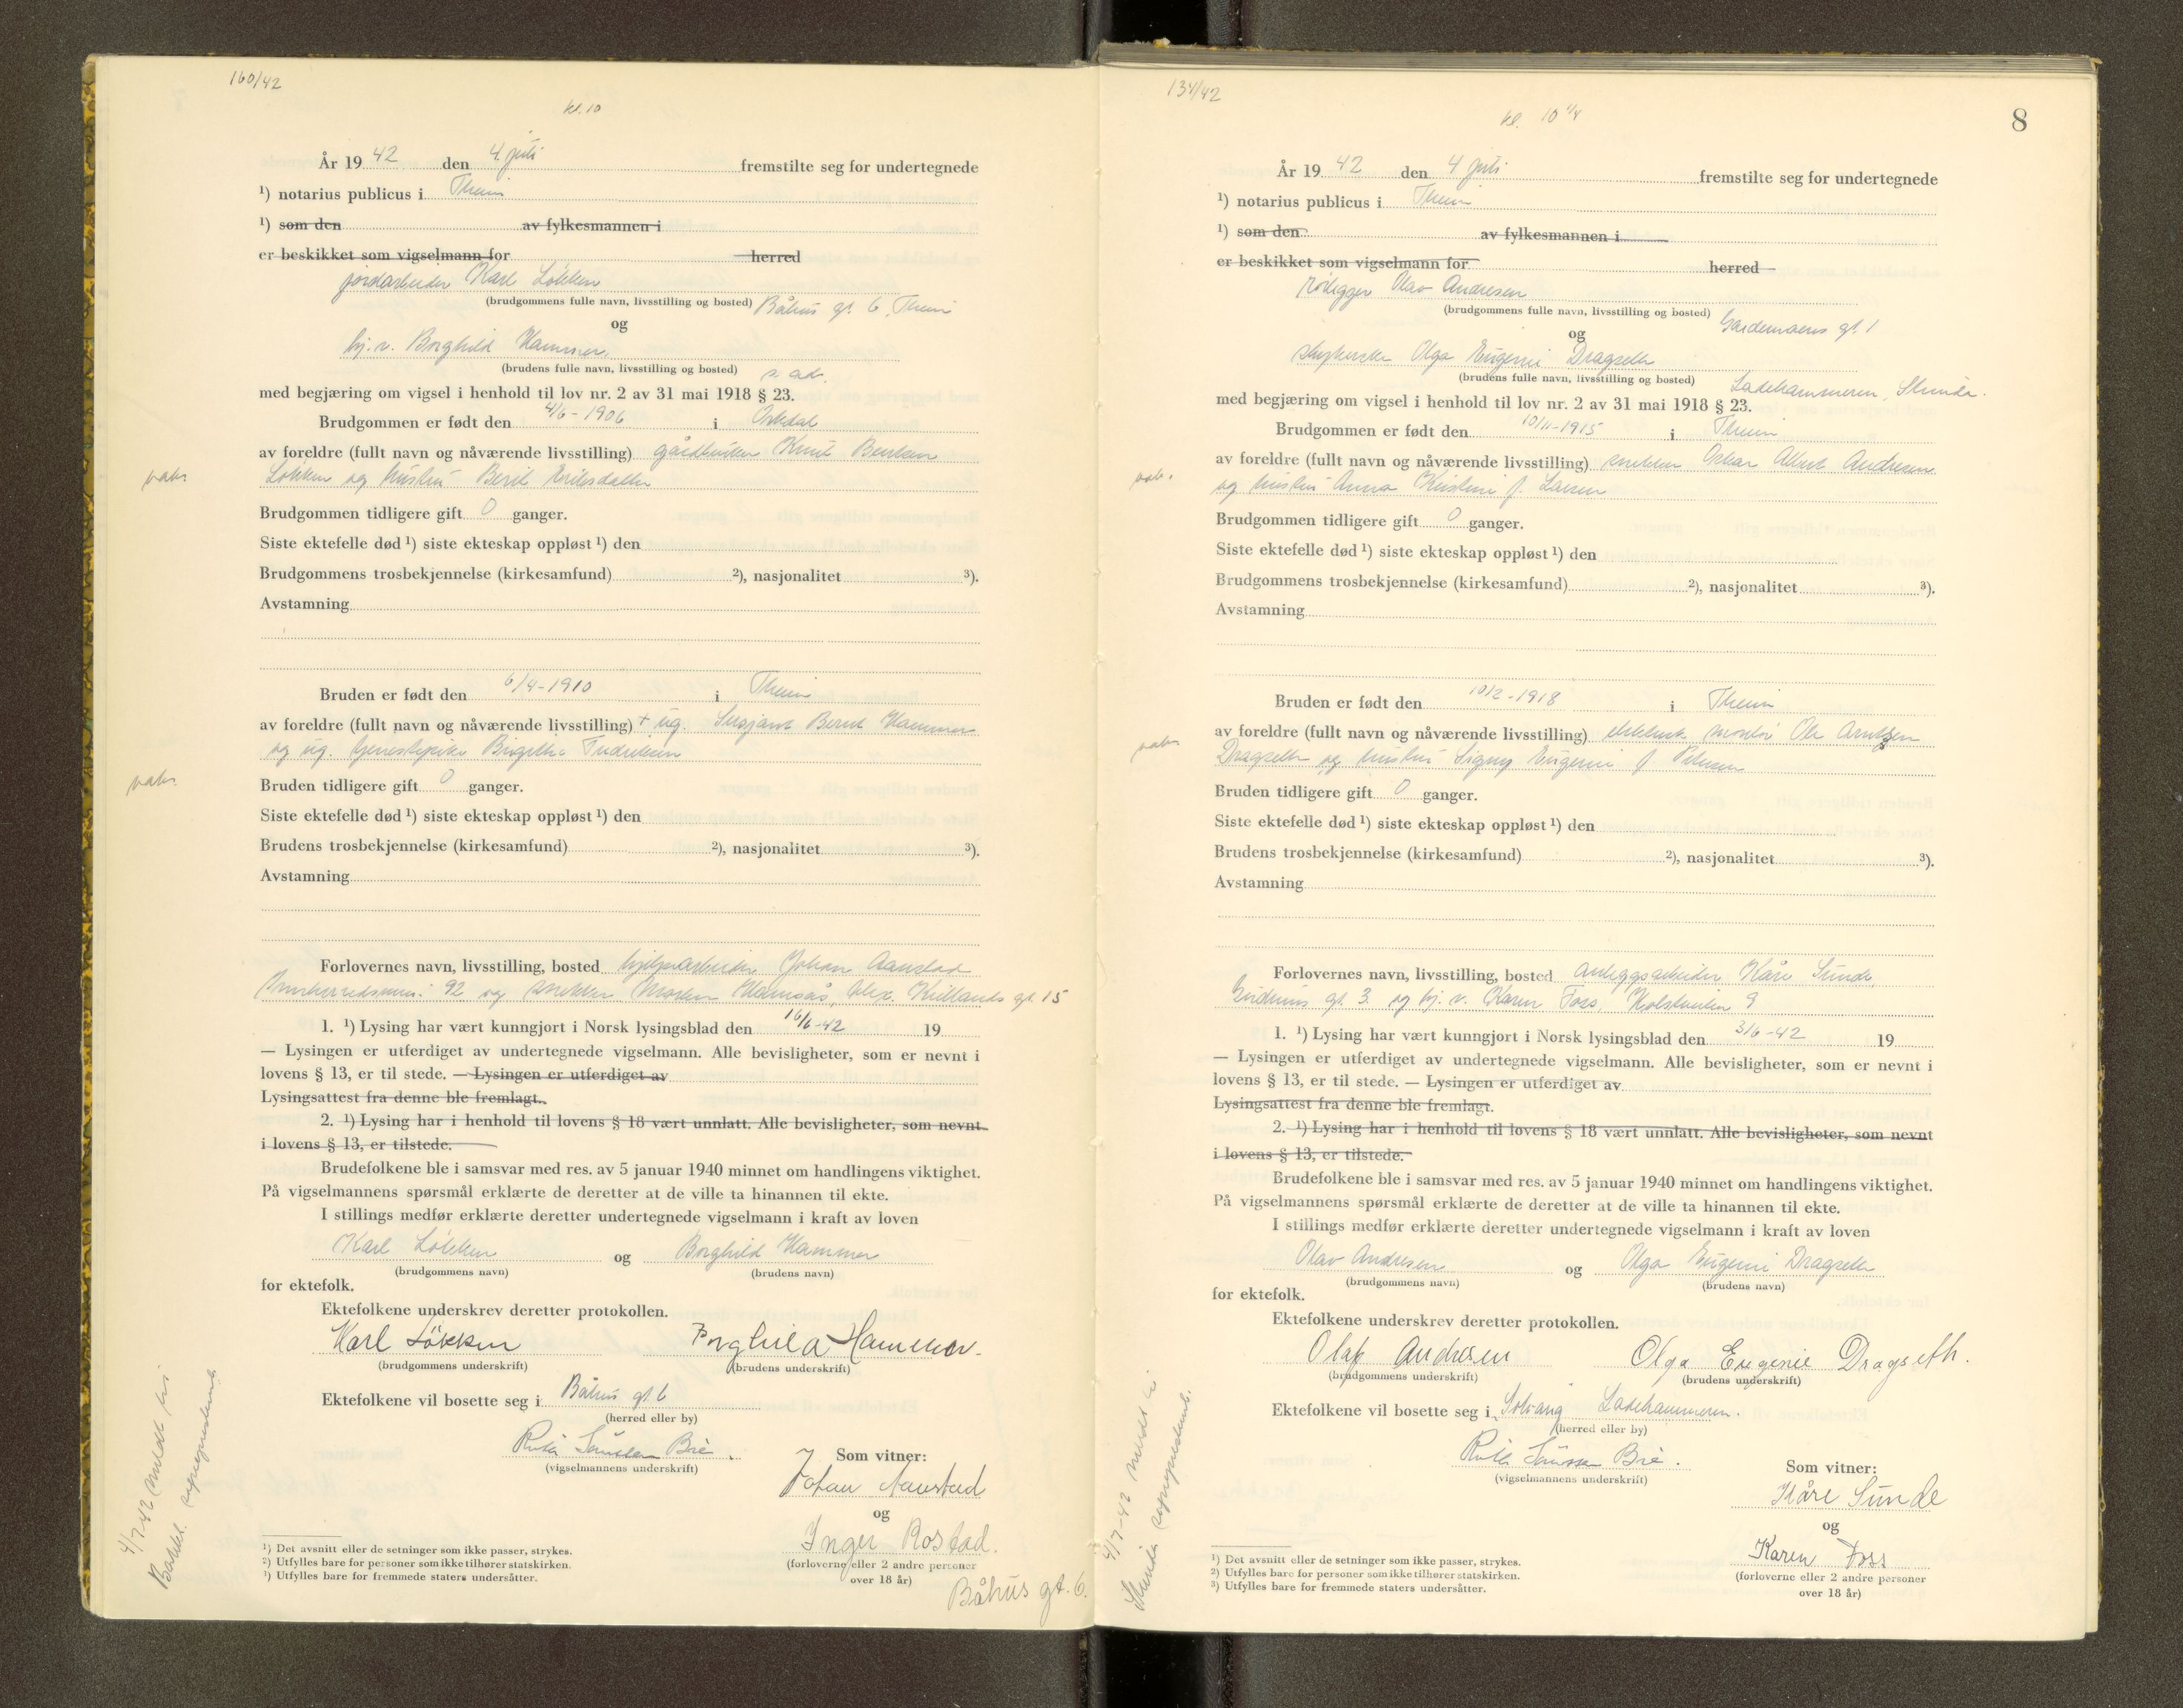 160/42
kl. 10
År 19 42 den 4. juli fremstilte seg for undertegnede
¹) notarius publicus i Theim
¹) som den av fylkesmannen i
er beskikket som vigselmann for herred
jordarbeider Karl Løkken
(brudgommens fulle navn, livsstilling og bosted) Båhus gt. 6, Theim
og
hj. v. Borghild Hammer
(brudens fulle navn, livsstilling og bosted) s. ad.
med begjæring om vigsel i henhold til lov nr. 2 av 31 mai 1918 § 23.
Brudgommen er født den 4/6-1906 i Orkdal
av foreldre (fullt navn og nåværende livsstilling) gårdbruker Knut Bentsen
Løkken og hustru Berit
vakr
Brudgommen tidligere gift 0 ganger.
Siste ektefelle død ¹) siste ekteskap oppløst ¹) den
Brudgommens trosbekjennelse (kirkesamfund) ²), nasjonalitet ³).
Avstamning
Bruden er født den 6/4-1910 i Theim
av foreldre (fullt navn og nåværende livsstilling) + ug. Sersjant Bernt Hammer
og ug. Birgitte Fredriksen
vakr.
Bruden tidligere gift 0 ganger.
Siste ektefelle død ¹) siste ekteskap oppløst ¹) den
Brudens trosbekjennelse (kirkesamfund) ²), nasjonalitet ³).
Avstamning
Forlovernes navn, livsstilling, bosted hjelpearbeider Johan Aanstad
Innherredsveien 92 og snekker Morten Hamsås, Alex. Kiellands gt. 15
1. ¹) Lysing har vært kunngjort i Norsk lysingsblad den 16/6-42 19
— Lysingen er utferdiget av undertegnede vigselmann. Alle bevisligheter, som er nevnt i
lovens § 13, er til stede. — Lysingen er utferdiget av
Lysingsattest fra denne ble fremlagt.
2. ¹) Lysing har i henhold til lovens § 18 vært unnlatt. Alle bevisligheter, som nevnt
i lovens § 13, er tilstede.
Brudefolkene ble i samsvar med res. av 5 januar 1940 minnet om handlingens viktighet.
På vigselmannens spørsmål erklærte de deretter at de ville ta hinannen til ekte.
I stillings medfør erklærte deretter undertegnede vigselmann i kraft av loven
Karl Løkken og Borghild Hammer
(brudgommens navn) (brudens navn)
for ektefolk.
Ektefolkene underskrev deretter protokollen.
Karl Løkken Borghild Hammer.
(brudgommens underskrift) (brudens underskrift)
Ektefolkene vil bosette seg i Båhus gt 6
(herred eller by)
Ruth Saussen Bie.
(vigselmannens underskrift)
Som vitner:
Johan Aanstad
og
Inger Rostad.
(forloverne eller 2 andre personer
over 18 år)
Båhus gt. 6.
4/7-42 meldt til
Bakkl. sogneprestemb.
¹) Det avsnitt eller de setninger som ikke passer, strykes.
²) Utfylles bare for personer som ikke tilhører statskirken.
³) Utfylles bare for fremmede staters undersåtter.
134/42
kl. 10 1/4
8
År 19 42 den 4 juli fremstilte seg for undertegnede
¹) notarius publicus i Theim
¹) som den av fylkesmannen i
er beskikket som vigselmann for herred
rørlegger Olav Andresen
(brudgommens fulle navn, livsstilling og bosted) Gardemoens gt. 1
og
Olga Eugenie Dragseth
(brudens fulle navn, livsstilling og bosted) Ladehammeren, Strinda.
med begjæring om vigsel i henhold til lov nr. 2 av 31 mai 1918 § 23.
Brudgommen er født den 10/11-1915 i Theim
av foreldre (fullt navn og nåværende livsstilling) snekker Oskar Albert Andresen
og hustru Anna Kristine f. Larsen
vakr.
Brudgommen tidligere gift 0 ganger.
Siste ektefelle død ¹) siste ekteskap oppløst ¹) den
Brudgommens trosbekjennelse (kirkesamfund) ²), nasjonalitet ³).
Avstamning
Bruden er født den 10/2-1918 i Theim
av foreldre (fullt navn og nåværende livsstilling) elektrisk montør Ole Arntsen
Dragseth og hustru Signy Eugenie f. Petersen
vakr.
Bruden tidligere gift 0 ganger.
Siste ektefelle død ¹) siste ekteskap oppløst ¹) den
Brudens trosbekjennelse (kirkesamfund) ²), nasjonalitet ³).
Avstamning
Forlovernes navn, livsstilling, bosted anleggsarbeider Kåre Sunde
Gudruns gt. 3 og hj. v. Karen Foss, Kolstadlien 9
1. ¹) Lysing har vært kunngjort i Norsk lysingsblad den 3/6-42 19
— Lysingen er utferdiget av undertegnede vigselmann. Alle bevisligheter, som er nevnt i
lovens § 13, er til stede. — Lysingen er utferdiget av
Lysingsattest fra denne ble fremlagt.
2. ¹) Lysing har i henhold til lovens § 18 vært unnlatt. Alle bevisligheter, som nevnt
i lovens § 13, er tilstede.
Brudefolkene ble i samsvar med res. av 5 januar 1940 minnet om handlingens viktighet.
På vigselmannens spørsmål erklærte de deretter at de ville ta hinannen til ekte.
I stillings medfør erklærte deretter undertegnede vigselmann i kraft av loven
Olav Andresen og Olga Eugenie Dragseth
(brudgommens navn) (brudens navn)
for ektefolk.
Ektefolkene underskrev deretter protokollen.
Olaf Andresen Olga Eugenie Dragseth.
(brudgommens underskrift) (brudens underskrift)
Ektefolkene vil bosette seg i Solvang Ladehammeren.
(herred eller by)
Ruth Saussen Bie.
(vigselmannens underskrift)
Som vitner:
Kåre Sunde
og
Karen Foss
(forloverne eller 2 andre personer
over 18 år)
4/7-42 meldt til
Strinda sogneprestemb.
¹) Det avsnitt eller de setninger som ikke passer, strykes.
²) Utfylles bare for personer som ikke tilhører statskirken.
³) Utfylles bare for fremmede staters undersåtter.